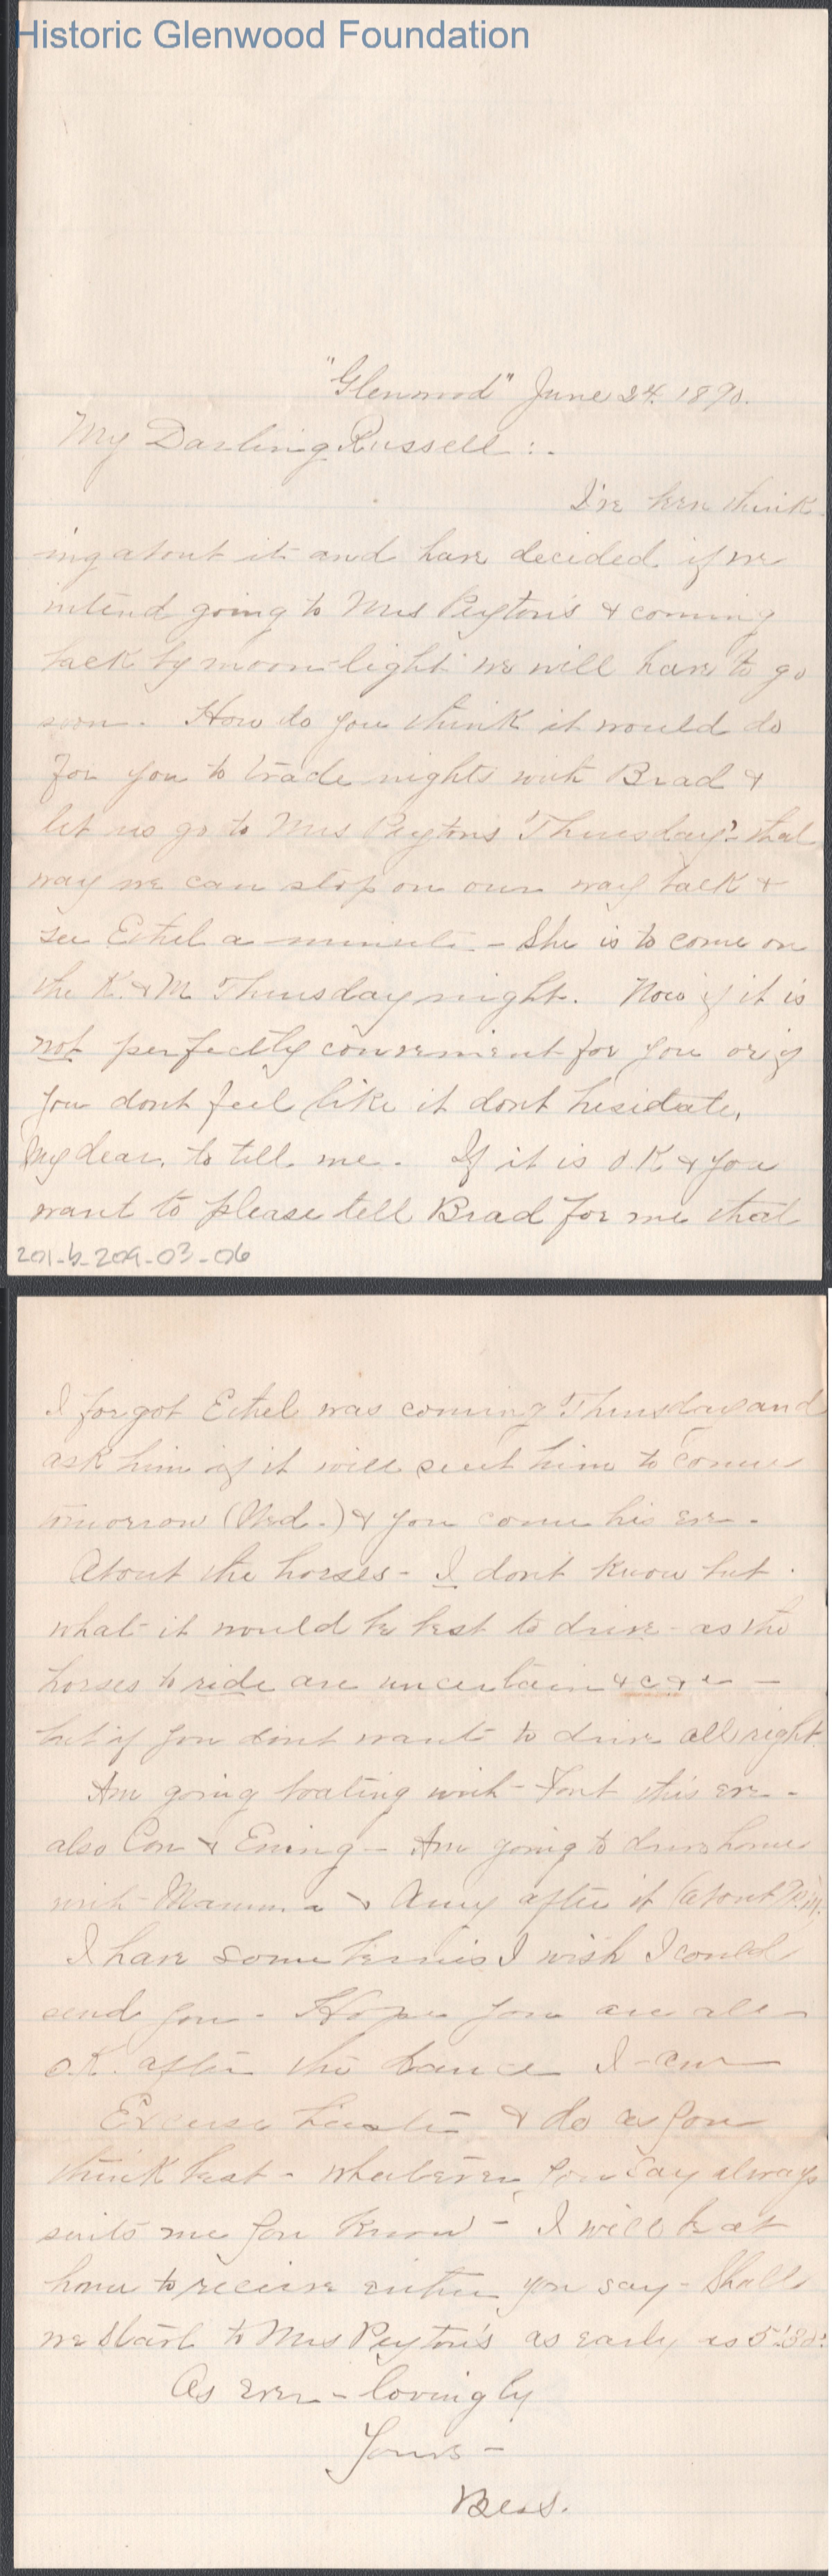 Historic Glenwood Foundation
"Glenwood" June 24. 1890.
My Darling Russell :.
I've been think-
ing about it and have decided if we
intend going to Mrs Peyton's & coming
back by moon-light we will have to go
soon. How do you think it would do
for you to trade nights with Brad &
let us go to Mrs Peytons 'Thursday'- that
way we can stop on our way back &
see Ethel a minute - She is to come on
the K. & M. Thursday night. Now if it is
not perfectly convenient for you or if
you dont feel like it dont hesidate,
my dear, to tell me. If it is O.K & you
want to please tell Brad for me that
201-b-209-03-06
I forgot Ethel was coming Thursday and
ask him if it will suit him to come
tomorrow (Wed.) & you come his eve.
About the horses - I dont know but
what it would be best to drive - as the
horses to ride are uncertain & c & c -
but if you dont want to drive all right.
Am going boating with this eve -
also Con & - Am going to drive home
with Mamma & Amy after it (about
I have some berries I wish I could
send you - Hope you are all
O.K. after the dance I am
Excuse haste & do as you
think best - whatever you say always
suits me you know - I will be at
home to receive either you say - Shall
we start to Mrs Peyton's as early as 5:30?
As ever - lovingly
Yours -
Bess.